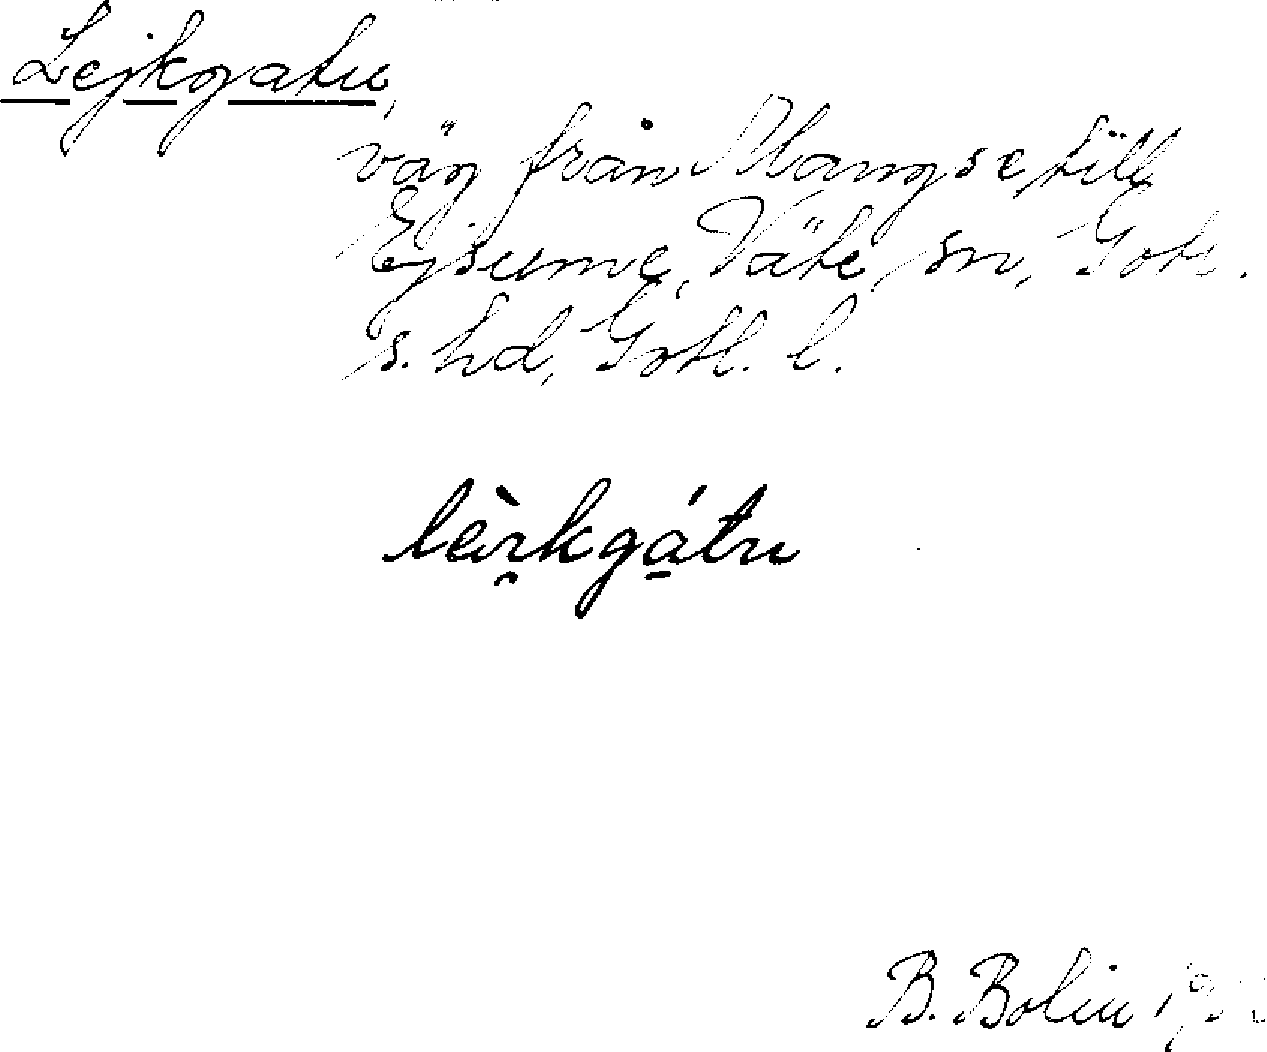 Lejkgatu,
väg från Mangse till
Ejsume, Väte sn, Gotl.
s. hd, Gotl. l.
B. Bolin